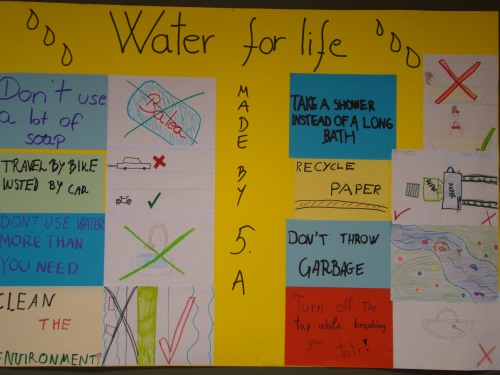 Water for life
Don't use
a lot of
soap
Balea
TRAVEL BY BIKE
INSTED BY CAR
DONT USE WATER
MORE THAN
YOU NEED
CLEAN
THE
ENVIRONMENT
MADE BY 5. A
TAKE A SHOWER
INSTEAD OF A LONG
BATH
RECYCLE
PAPER
DON'T THROW
GARBAGE
Turn off the
tap while brushing
your teeth!